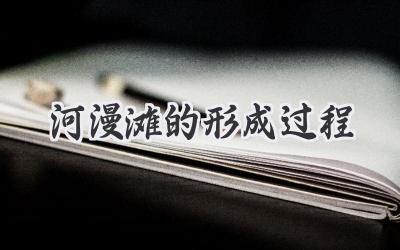 河漫滩的形成过程